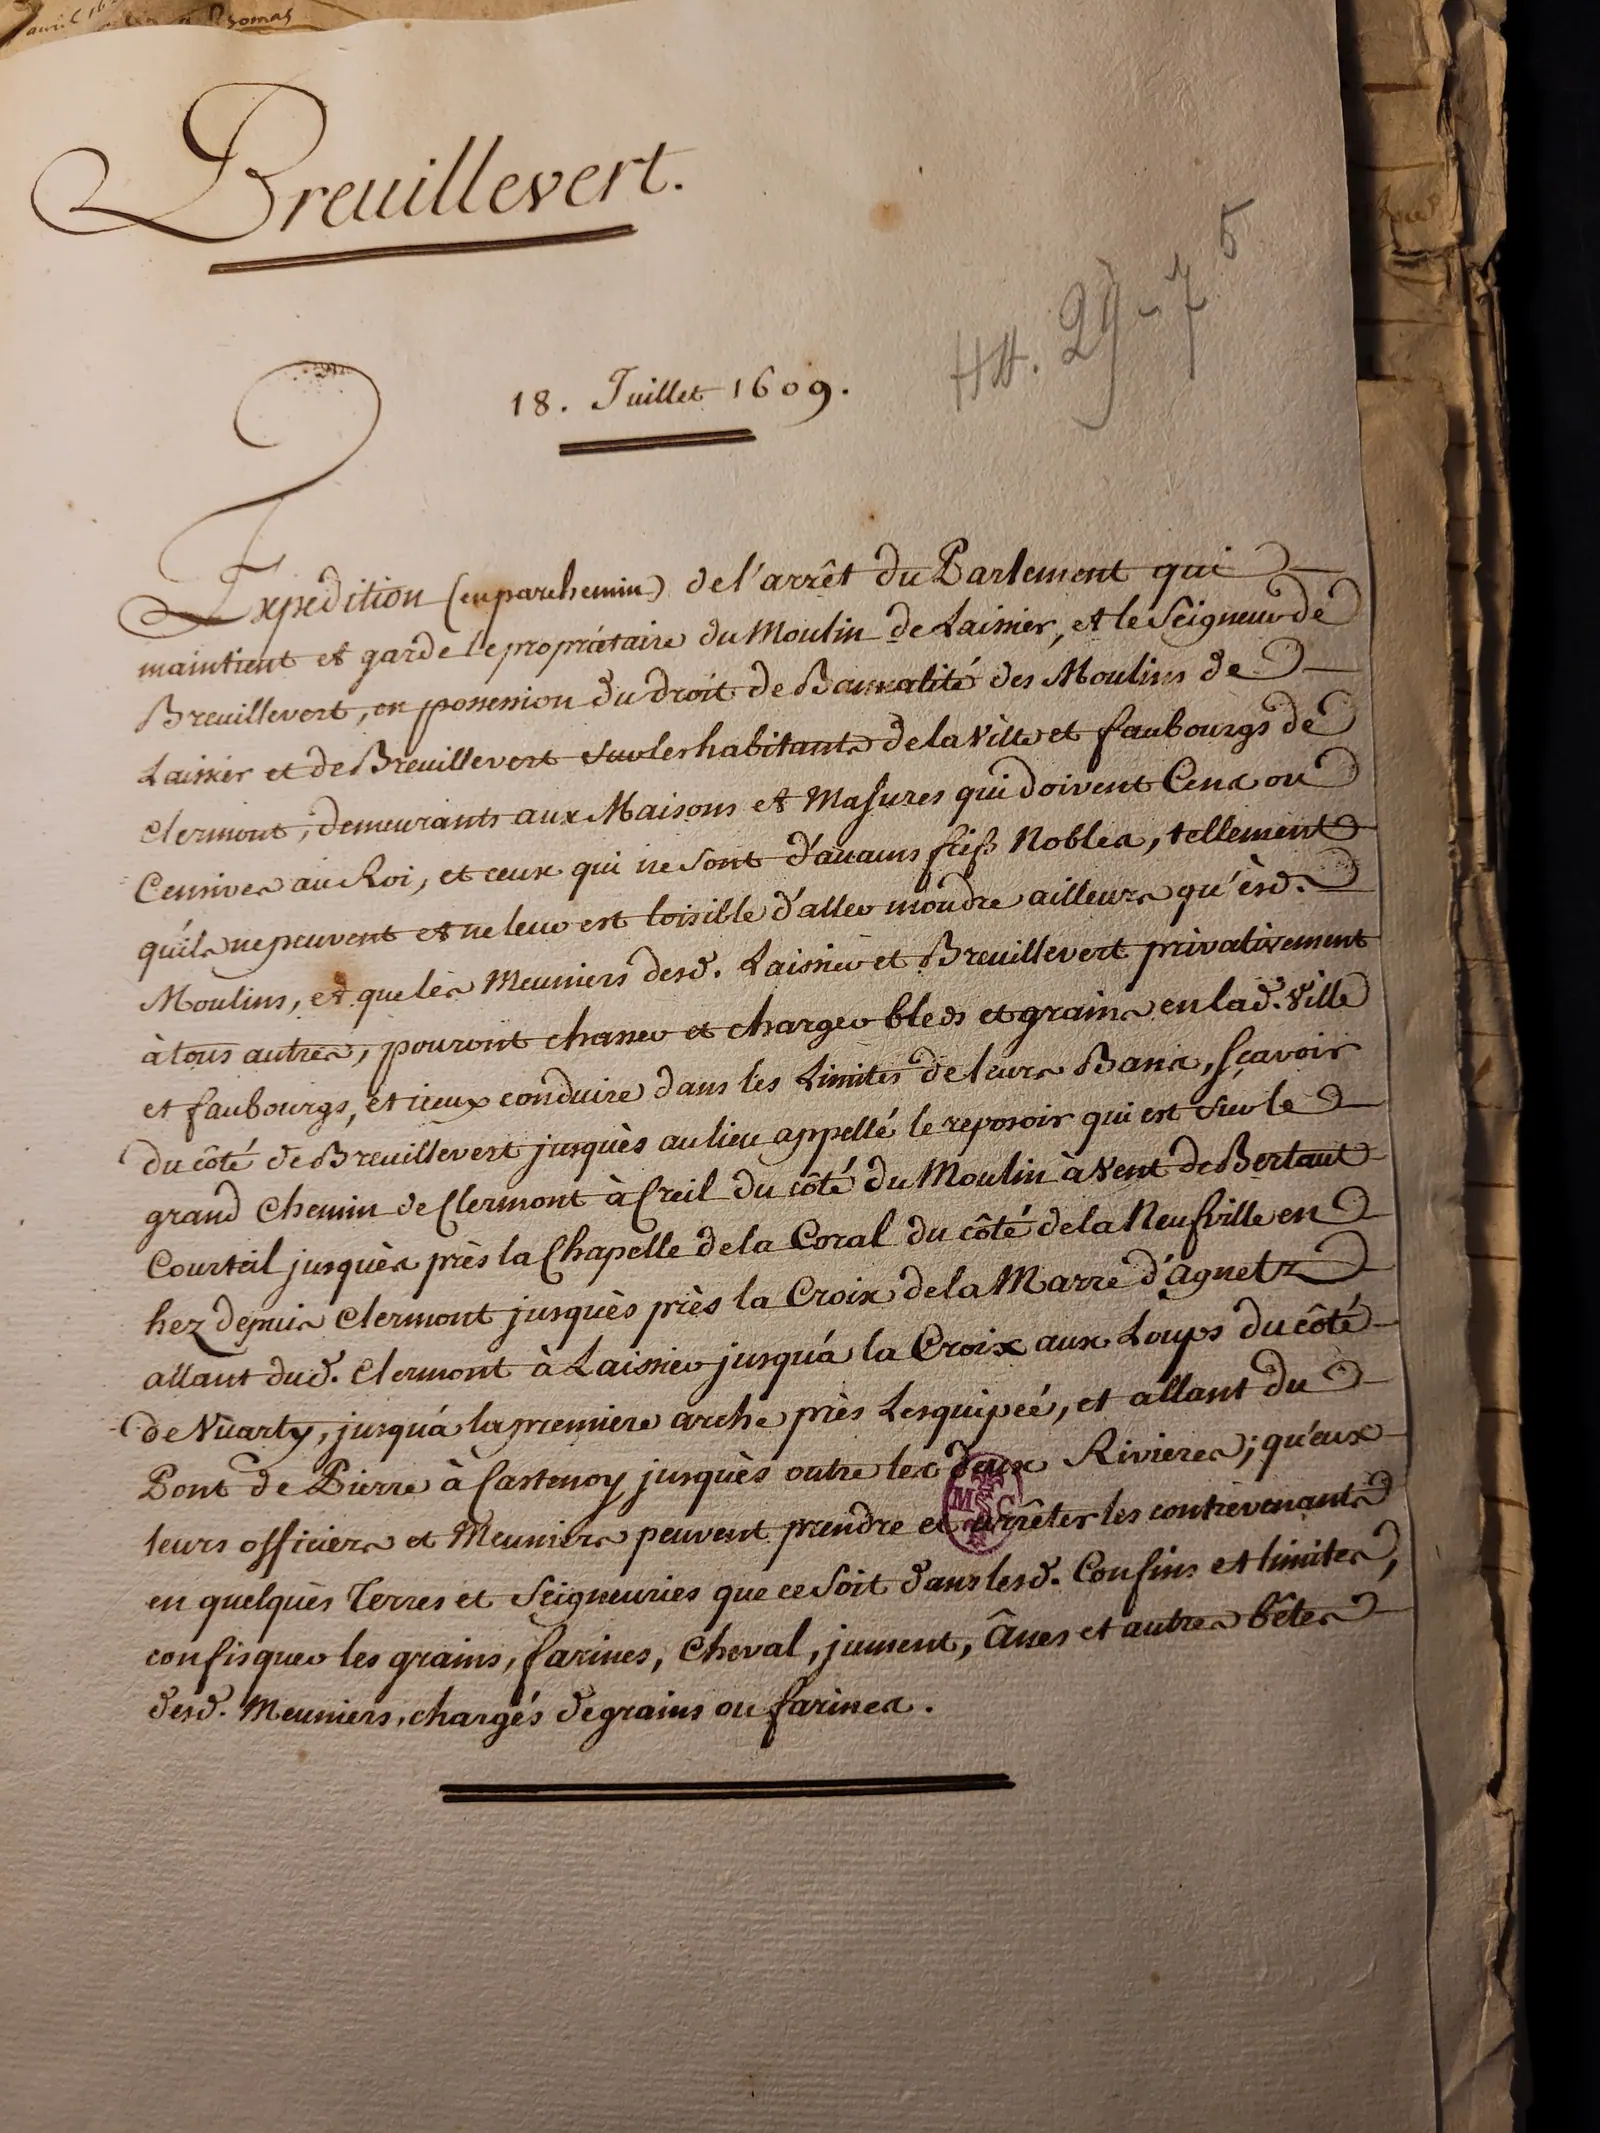 Breuillevert.
HH. 29-7 5
18. Juillet 1609.
Expedition (en parchemin) de l'arrêt du Parlement qui
maintient et garde le propriétaire du Moulin de Laissier, et le Seigneur de
Breuillevert, en possession du droit de Bannalité des Moulins de
Laissier et de Breuillevert sur les habitants de la Ville et faubourgs de
Clermont, demeurants aux Maisons et Masures qui doivent Cens ou
Censives au Roi, et ceux qui ne sont d'aucuns fiefs Nobles, tellement
qu'ils ne peuvent et ne leur est loisible d'aller moudre ailleurs qu'èsd.
Moulins, et que les Meuniers desd. Laissier et Breuillevert privativement
à tous autres, pouront chasser et charger bleds et grains en lad. Ville
et faubourgs, et iceux conduire dans les Limites de leurs Bans, sçavoir
du côté de Breuillevert jusquès au lieu appellé le reposoir qui est sur le
grand Chemin de Clermont à Creil du côté du Moulin à Vent de Bertaut
Courteil jusquès près la Chapelle de la Coral du côté de la Neufville en
hez depuis Clermont jusquès près la Croix de la Marre d'Agnetz
allant dud. Clermont à Laissier jusqu'à la Croix aux Loups du côté
de Nùarty, jusqu'à la premiere arche près Lesquipeé, et allant du
Pont de Pierre à Castenoy jusquès outre les deux Rivieres; qu'eux
MSC
leurs officiers et Meuniers peuvent prendre et arrêter les contrevenants
en quelquès Terres et Seigneuries que ce soit dans lesd. Confins et limites,
confisquer les grains, farines, Cheval, jument, Ânes et autres bêtes
desd. Meuniers, chargés de grains ou farines.